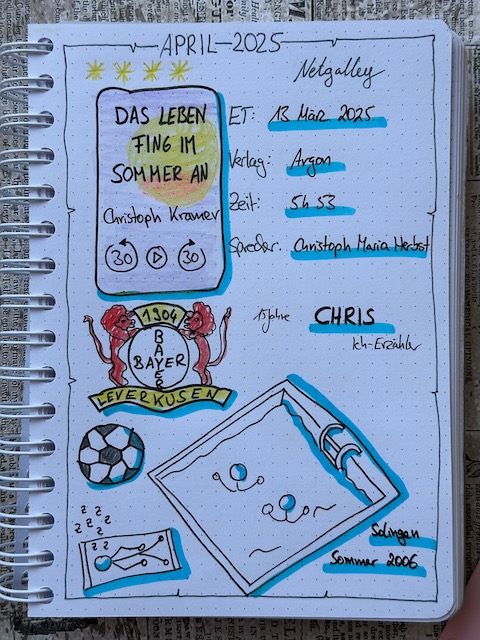 APRIL-2025
Netgalley
DAS LEBEN
FING IM
SOMMER AN
Christoph Kramer
30 30
ET: 13 März 2025
Verlag: Argon
Zeit: 5h 53
Sprecher: Christoph Maria Herbst
1904
BAYER
BAYER
LEVERKUSEN
15 Jahre CHRIS
Ich-Erzähler
z z
z z z
z z
z z
Solingen
Sommer 2006